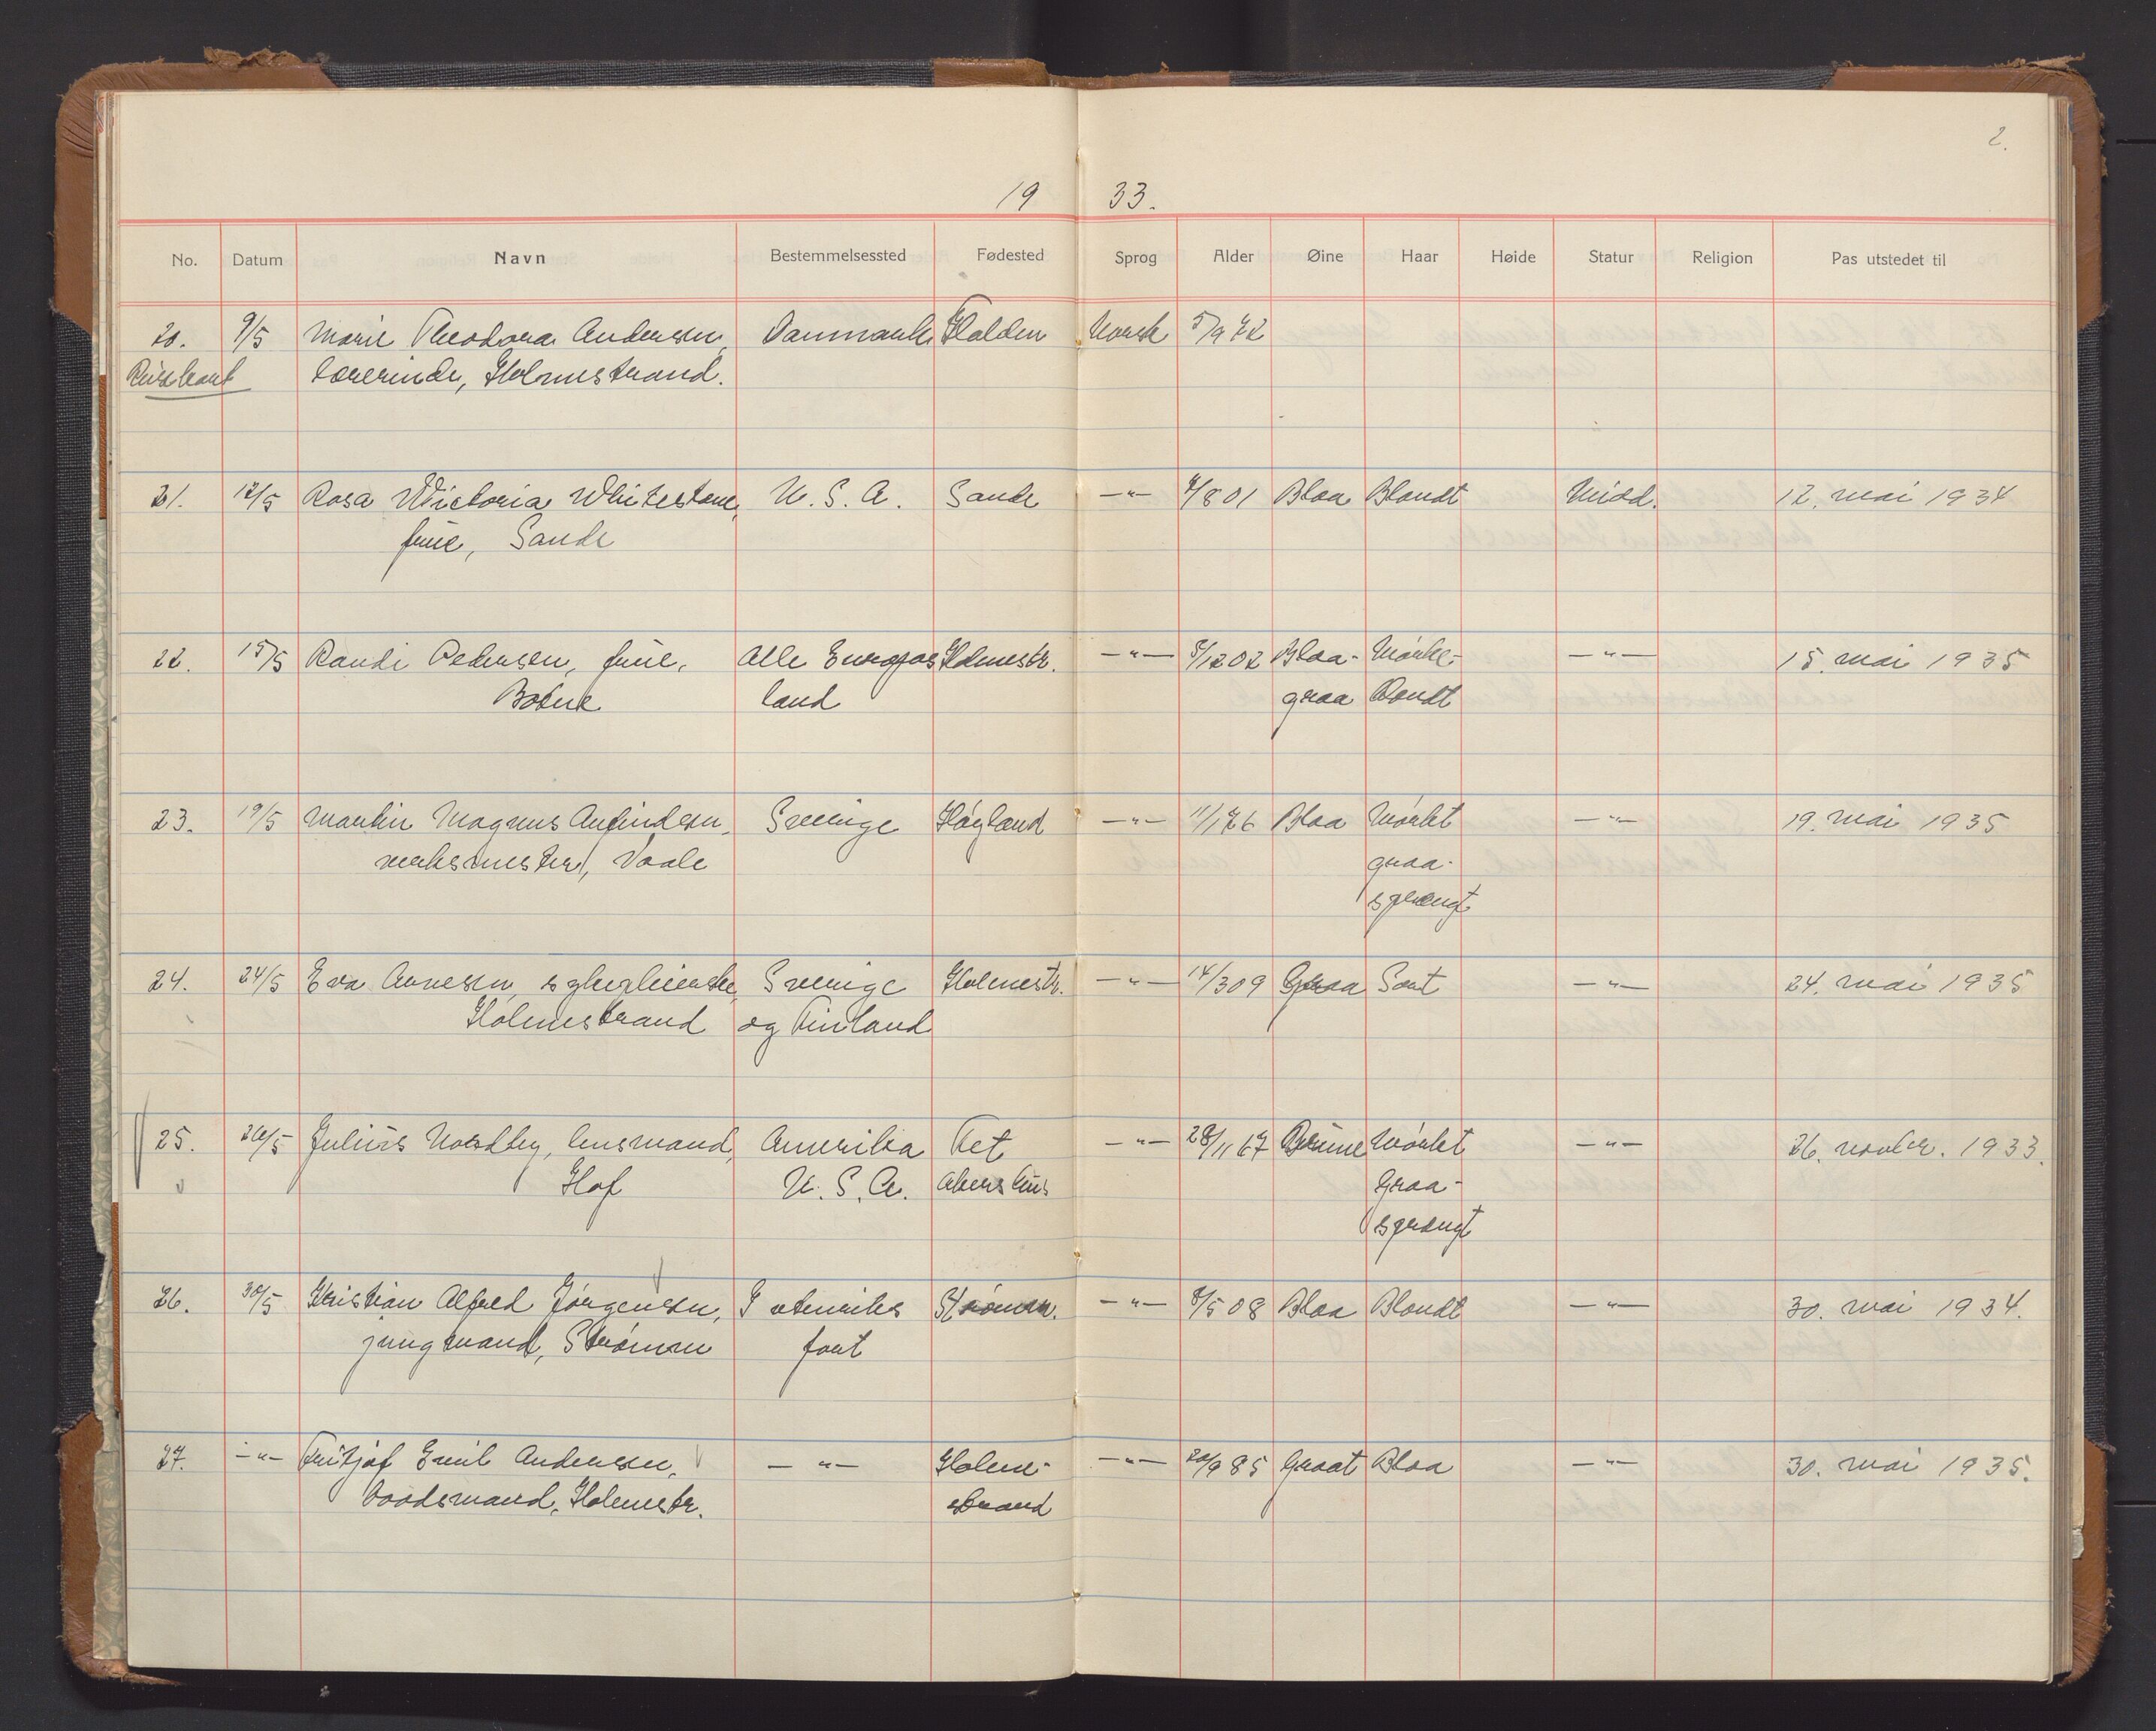 2.
19 33.
No. Datum Navn Bestemmelsessted Fødested Sprog Alder Øine Haar Høide Statur Religion Pas utstedet til
20. 9/5 Marie Theodora Andersen, Danmark Halden Norsk 5/9 72
Reisekort lærerinde, Holmestrand.
21. 12/5 Rosa Wictoria Whitestone, U. S. A. Sande -"- 4/8 01 Blaa Blondt Midd. 12. mai 1934
frue, Sande
22. 15/5 Randi Pedersen, frue, Alle Europas Holmestr. -"- 5/12 02 Blaa- Mørke- -"- 15. mai 1935
Botne land graa blondt
23. 19/5 Martin Magnus Anfindsen, Sverige Høyland -"- 11/1 76 Blaa Mørkt -"- 19. mai 1935
verksmester, Vaale graa-
sprengt
24. 24/5 Eva Arnesen, sykepleierske Sverige Holmestr. -"- 14/3 09 Graa Sort -"- 24. mai 1935
Holmestrand og Finland
25. 26/5 Julius Nordby, lensmand, Amerika Fet -"- 28/11 67 Brune Mørkt -"- 26. novbr. 1933.
Hof U. S. A. Akershus Graa-
sprengt
26. 30/5 Kristian Alfred Jørgensen, I utenriks Strømm. -"- 8/5 08 Blaa Blondt -"- 30. mai 1934.
jungmand, Strømm fart
27. -"- Fritjof Emil Andersen, -"- Holme- -"- 20/9 85 Graat Blaa -"- 30. mai 1935.
baadsmand, Holmestr. strand